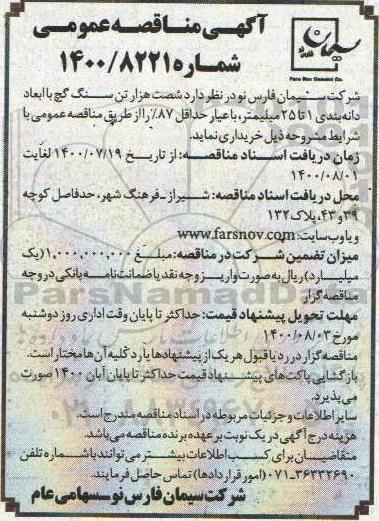 آگهی مناقصه عمومی
شماره ۱۴۰۰/۸۲۲۱
سیمان
Pars Nov Cement Co.
شرکت سیمان فارس نو در نظر دارد شصت هزار تن سنگ گچ با ابعاد
دانه‌بندی ۱ تا ۲۵ میلیمتر، با عیار حداقل ۸۷٪ را از طریق مناقصه عمومی با
شرایط مشروحه ذیل خریداری نماید.
زمان دریافت اسناد مناقصه: از تاریخ ۱۴۰۰/۰۷/۱۹ لغایت
۱۴۰۰/۰۸/۰۱
محل دریافت اسناد مناقصه: شیراز - فرهنگ شهر، حدفاصل کوچه
۳۹ و ۴۳، پلاک ۱۳۲
و یا وب سایت: www.farsnov.com
میزان تضمین شرکت در مناقصه: مبلغ ۱,۰۰۰,۰۰۰,۰۰۰ (یک
میلیارد) ریال به صورت واریز وجه نقد یا ضمانت‌نامه بانکی در وجه
مناقصه گزار
مهلت تحویل پیشنهاد قیمت: حداکثر تا پایان وقت اداری روز دوشنبه
مورخ ۱۴۰۰/۰۸/۰۳
مناقصه‌گزار در رد یا قبول هر یک از پیشنهادها یا رد کلیه آن‌ها مختار است.
بازگشایی پاکت‌های پیشنهاد قیمت حداکثر تا پایان آبان ۱۴۰۰ صورت
می‌پذیرد.
سایر اطلاعات و جزئیات مربوطه در اسناد مناقصه مندرج است.
هزینه درج آگهی در یک نوبت بر عهده برنده مناقصه می‌باشد.
متقاضیان برای کسب اطلاعات بیشتر می‌توانند با شماره تلفن
۰۷۱-۳۶۳۳۲۶۹۰ (امور قراردادها) تماس حاصل فرمایند.
شرکت سیمان فارس نو - سهامی عام
ParsNamadData